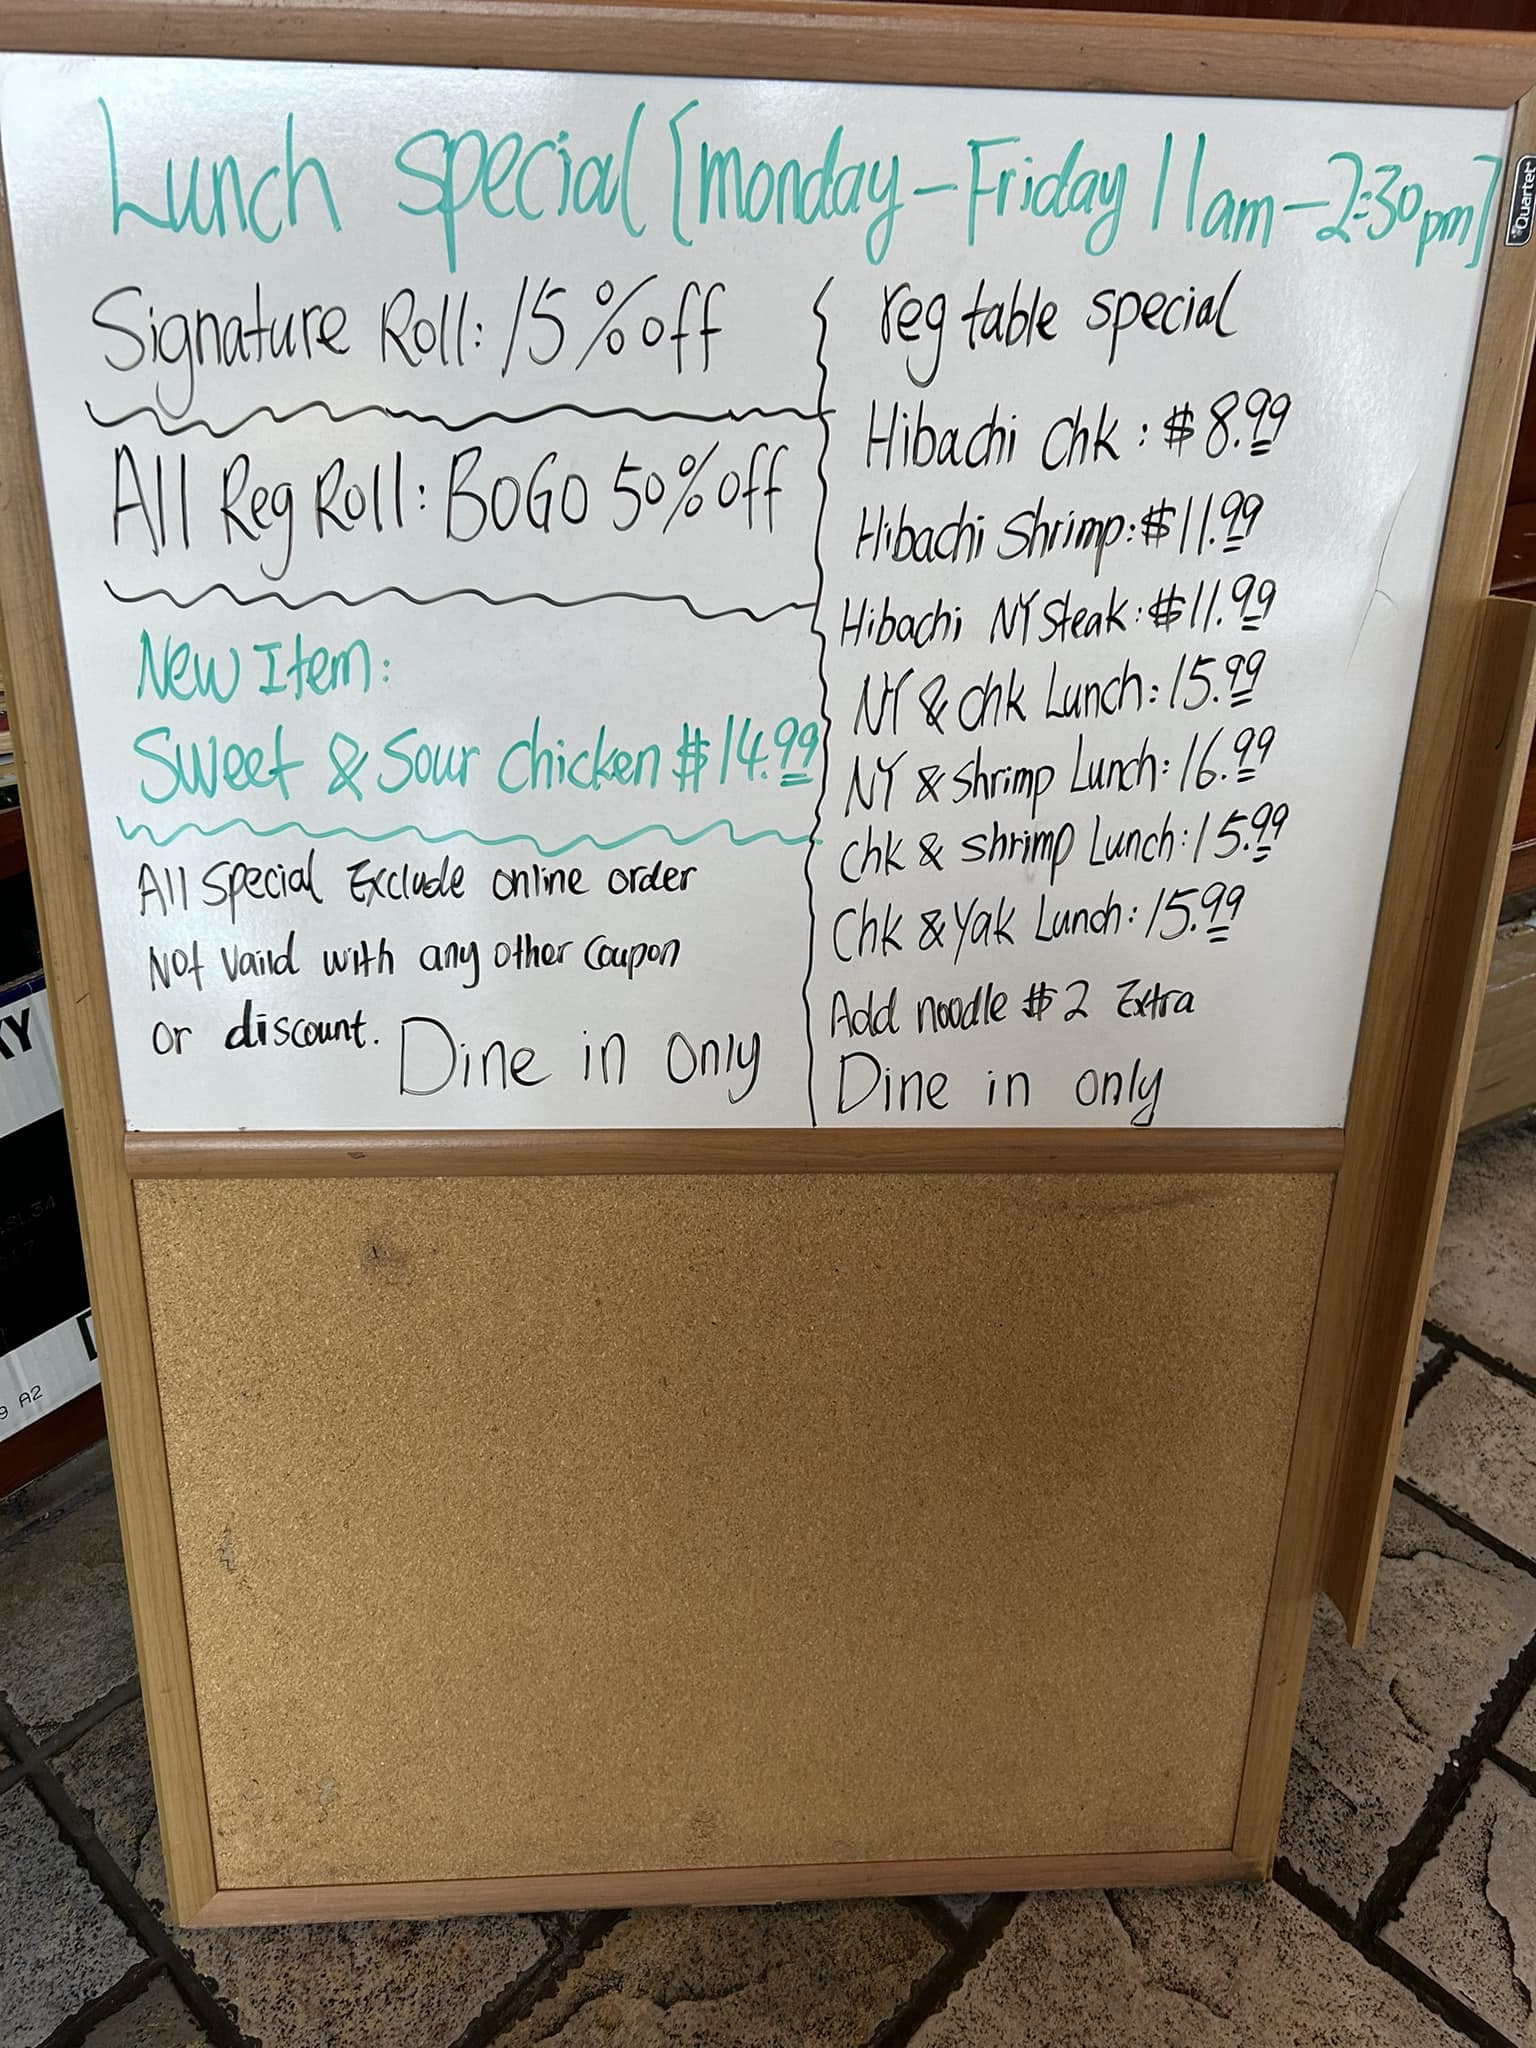 Lunch special [monday-Friday 11am-2:30pm]
Quartet
Signature Roll: 15% off
All Reg Roll: BOGO 50% off
New Item:
Sweet & Sour chicken $14.99
All special Exclude online order
Not vaild with any other coupon
or discount. Dine in only
reg table special
Hibachi chk: $8.99
Hibachi Shrimp: $11.99
Hibachi NY Steak: $11.99
NY & chk Lunch: 15.99
NY & shrimp Lunch: 16.99
chk & shrimp Lunch: 15.99
Chk & Yak Lunch: 15.99
Add noodle $2 Extra
Dine in only
A2